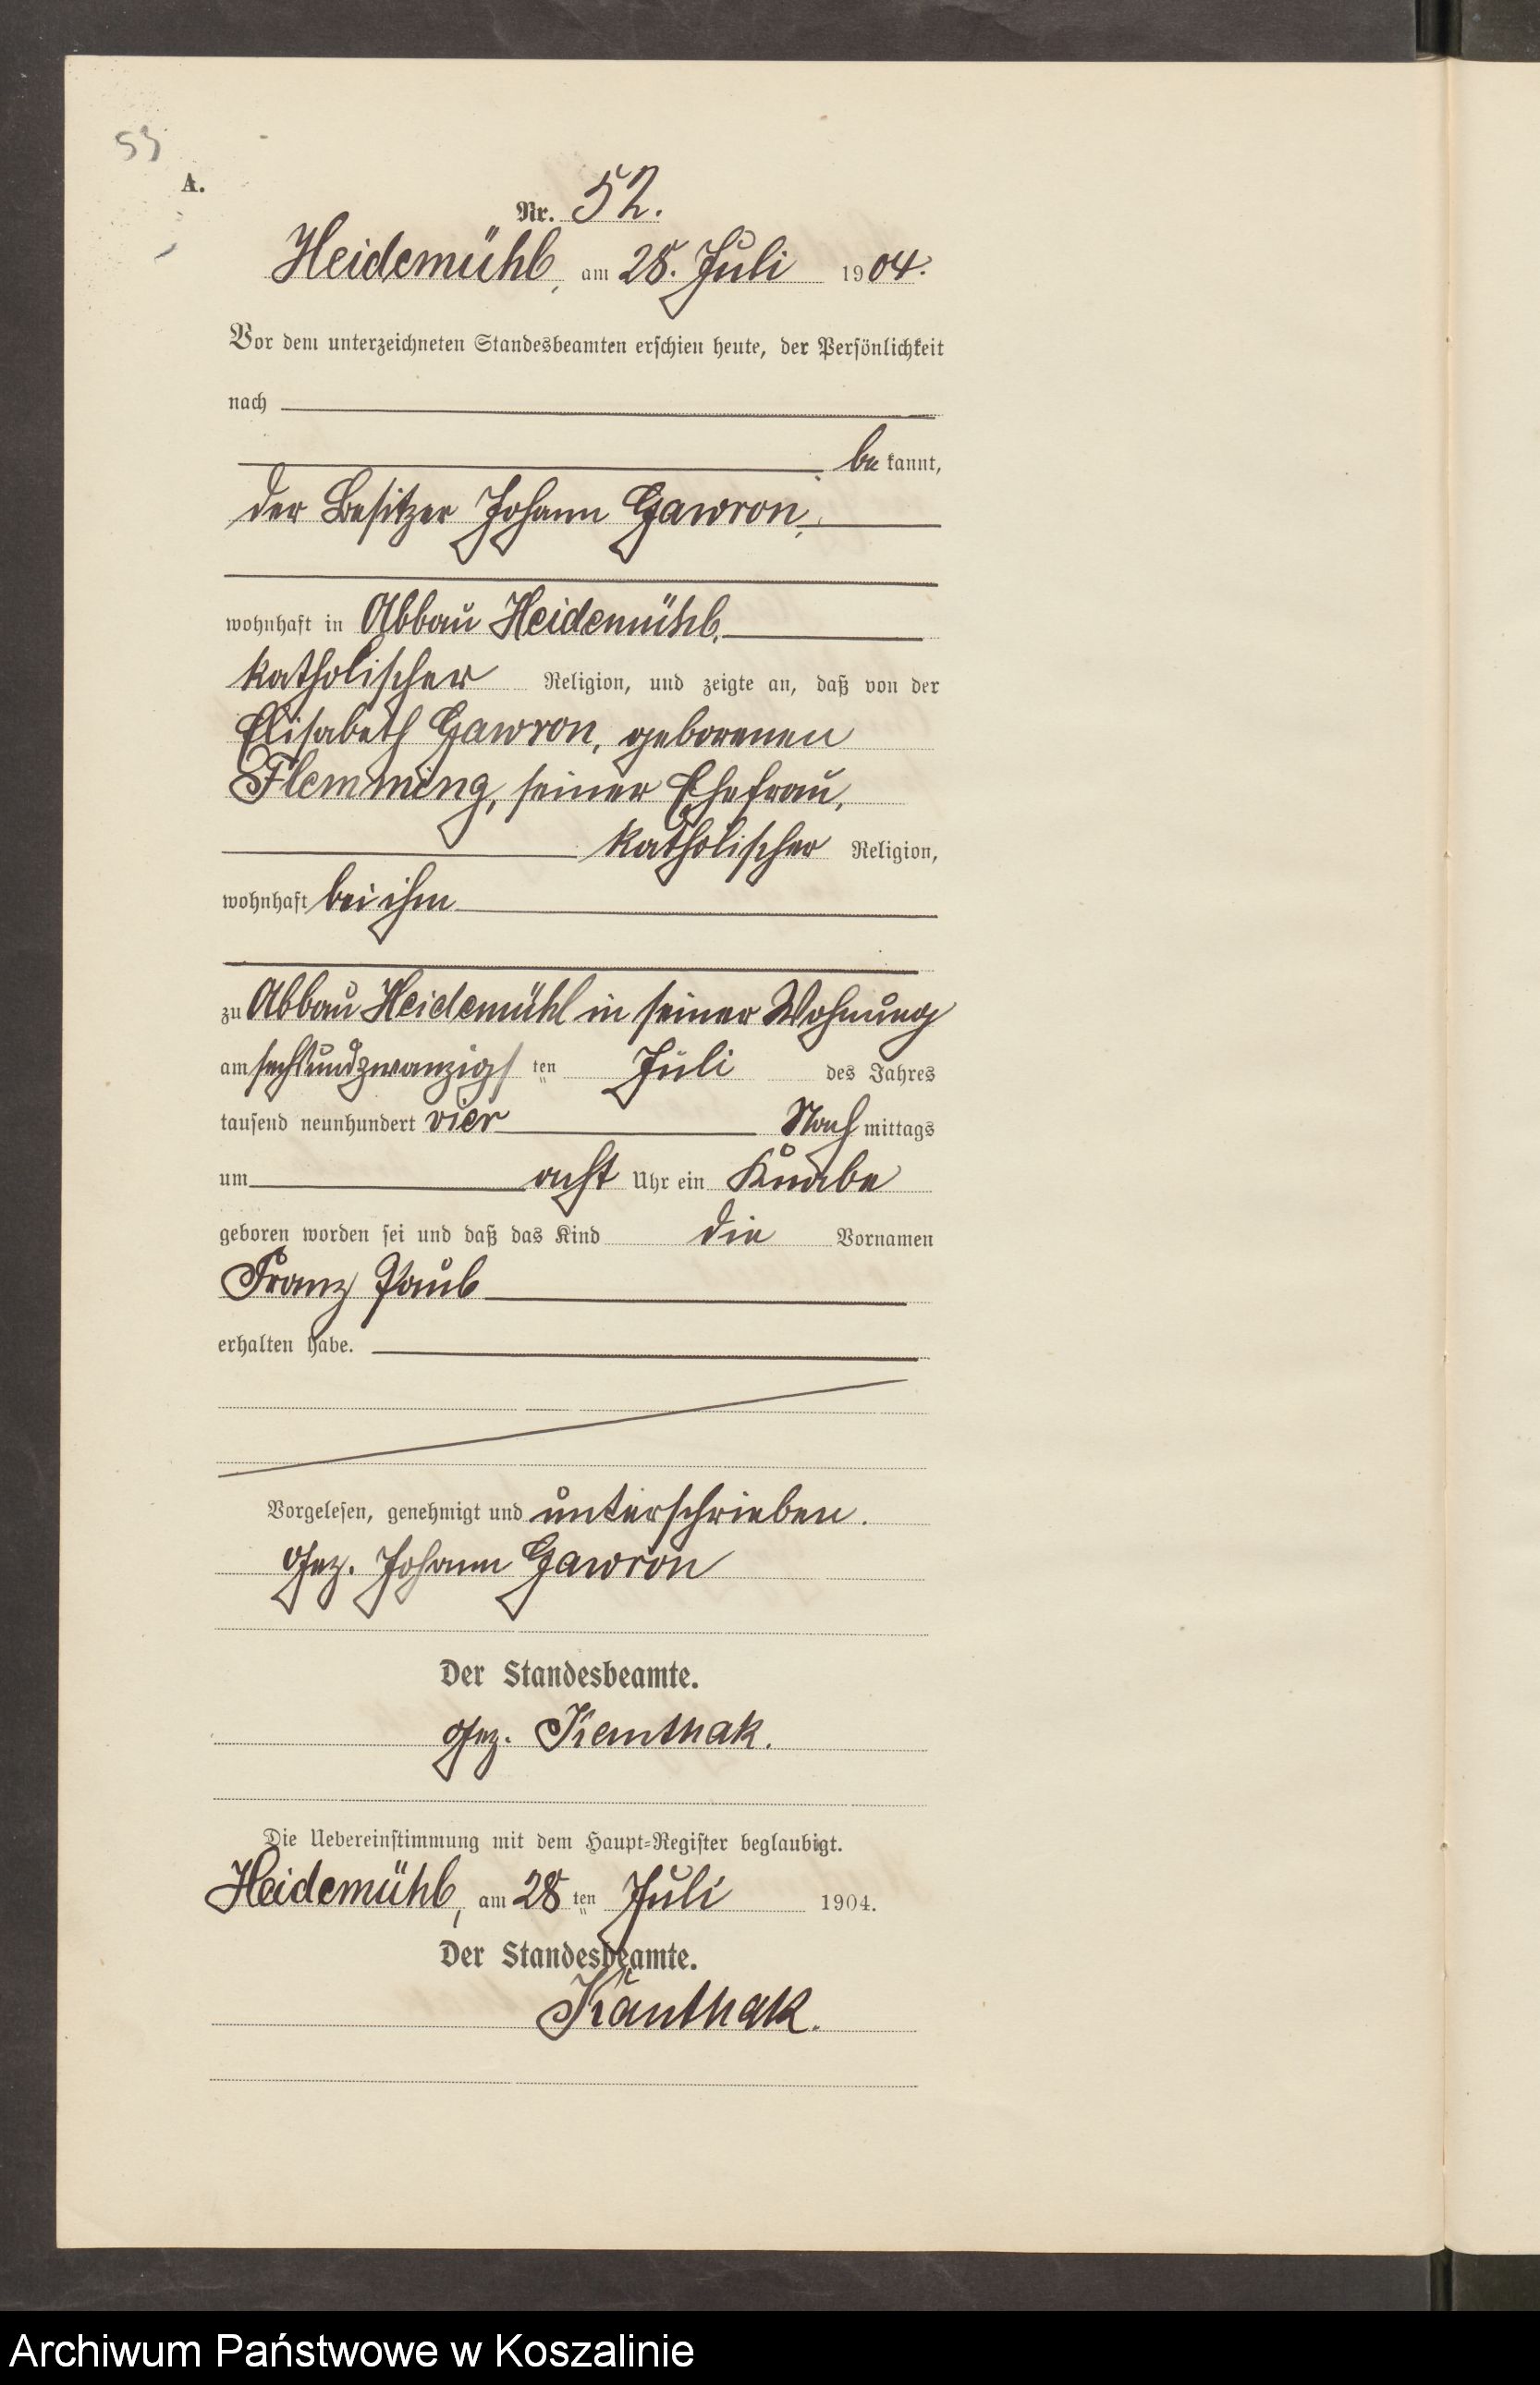 53
A.
Nr. 52.
Heidemühl, am 28. Juli 1904.
Vor dem unterzeichneten Standesbeamten erschien heute, der Persönlichkeit
nach
bekannt,
der Besitzer Johann Gawron,
wohnhaft in Abbau Heidemühl,
katholischer Religion, und zeigte an, daß von der
Elisabeth Gawron, geborenen
Flemming, seiner Ehefrau,
katholischer Religion,
wohnhaft bei ihm
zu Abbau Heidemühl in seiner Wohnung
am sechsundzwanzigsten Juli des Jahres
tausend neunhundert vier Nachmittags
um acht Uhr ein Knabe
geboren worden sei und daß das Kind die Vornamen
Franz Paul
erhalten habe.
Vorgelesen, genehmigt und unterschrieben.
Gez. Johann Gawron
Der Standesbeamte.
Gez. Kanthak.
Die Uebereinstimmung mit dem Haupt-Register beglaubigt.
Heidemühl, am 28 ten Juli 1904.
Der Standesbeamte.
Kanthak.
Archiwum Państwowe w Koszalinie